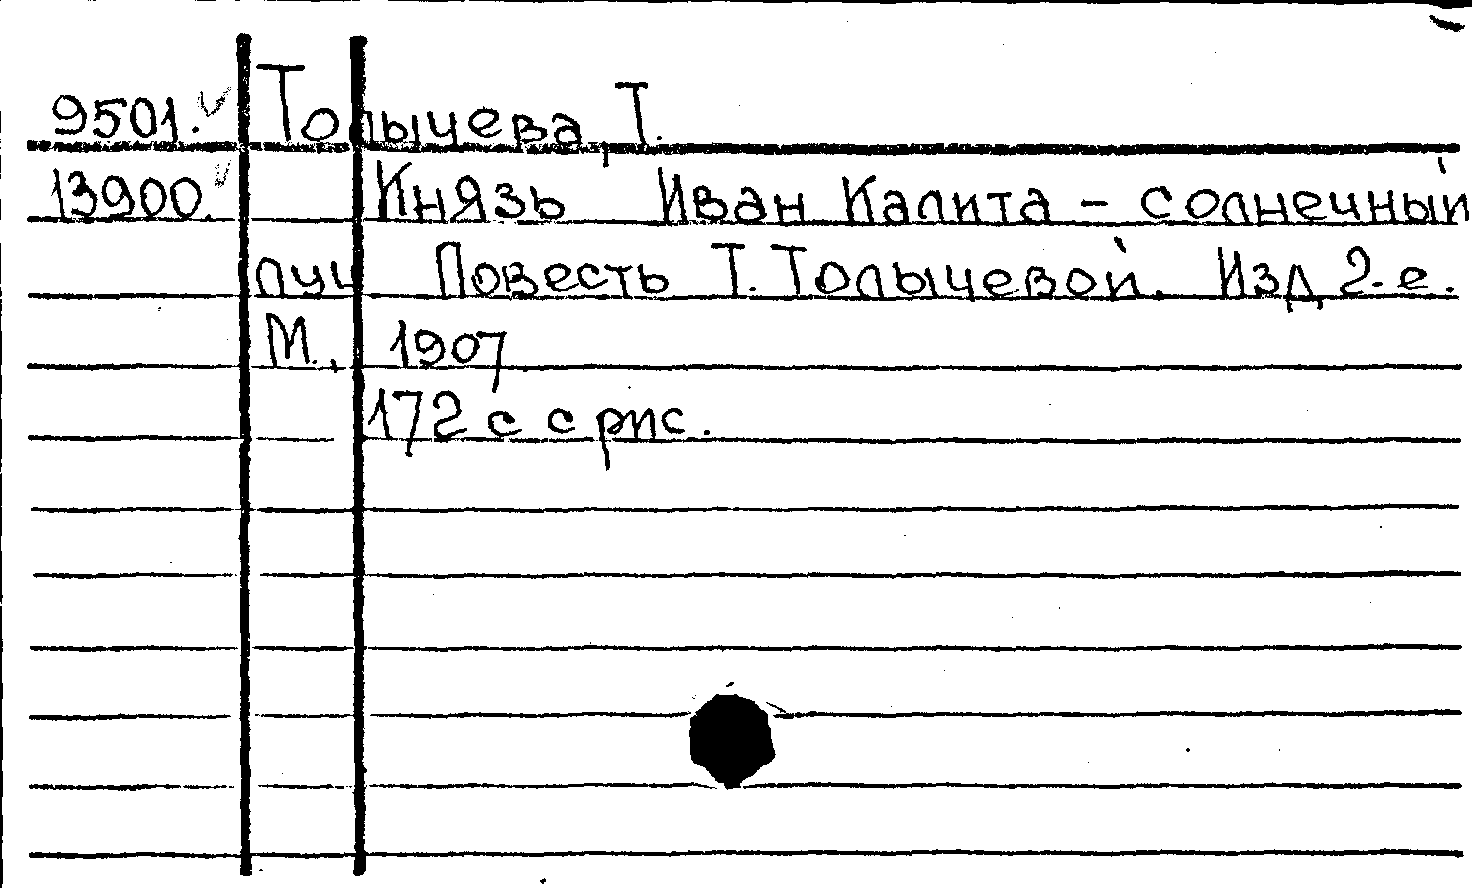 9501. Толычева, Т.
13900. Князь Иван Калита - солнечный
луч Повесть Т. Толычевой. Изд. 2-е.
М., 1907
172 с с рис.